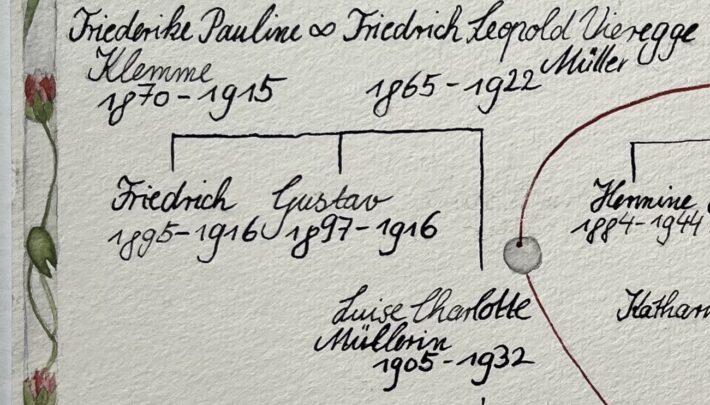 Friederike Pauline ∞ Friedrich Leopold Vieregge
Klemme Müller
1870-1915 1865-1922
Friedrich Gustav Hermine
1895-1916 1897-1916 1884-1944
Luise Charlotte Kathar
Müllerin
1905-1932